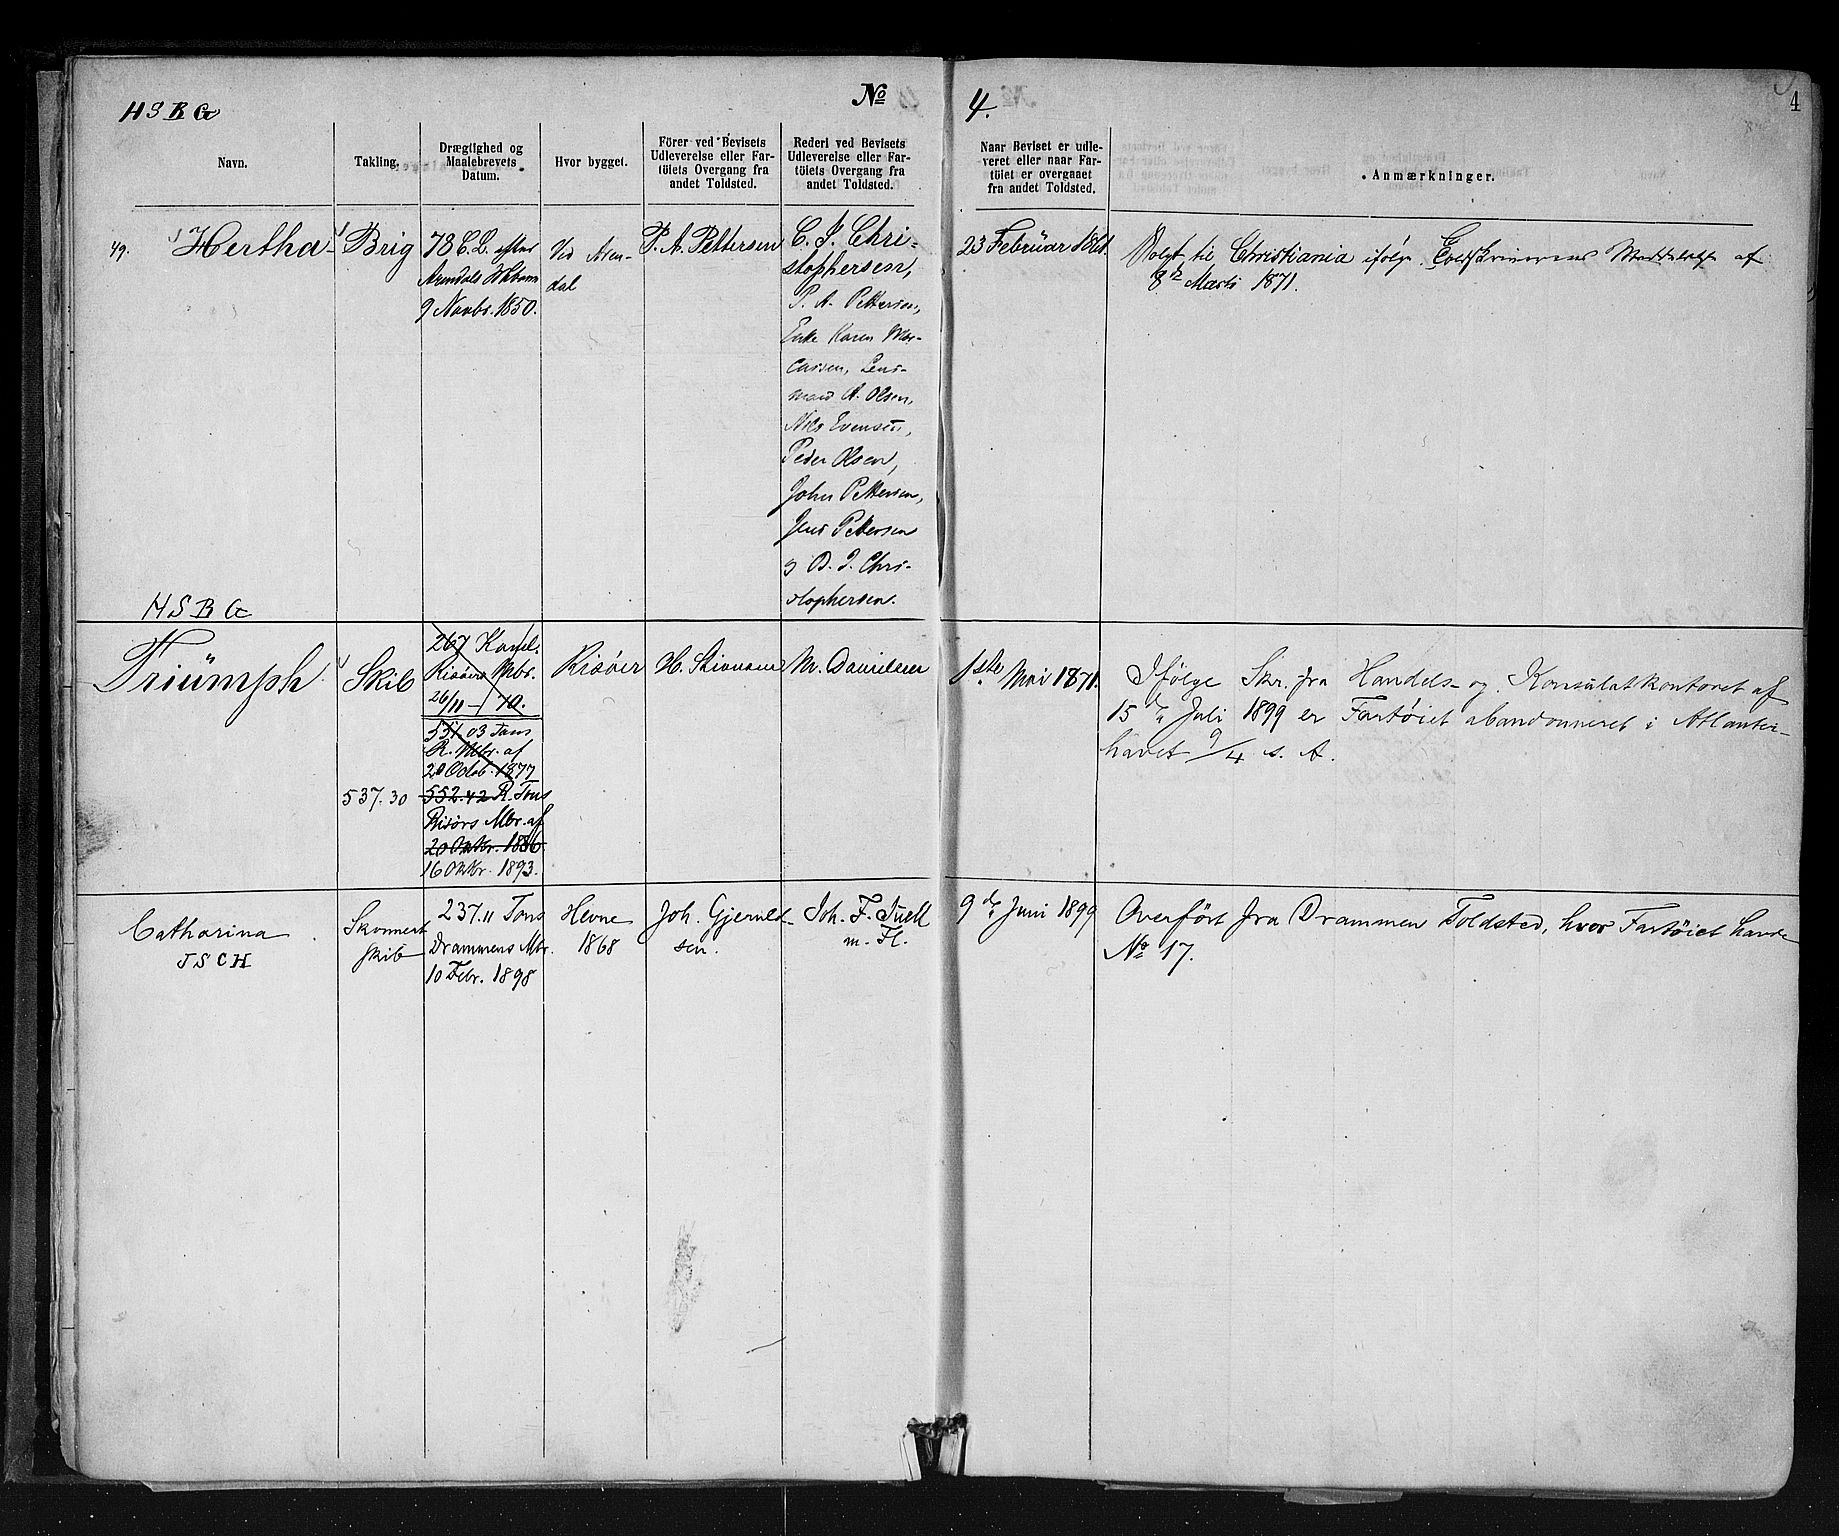 H S B G
No
4.
4
Navn.
Takling.
Drægtighed og
Maalebrevets
Datum.
Hvor bygget.
Förer ved Bevisets
Udleverelse eller Far-
töiets Overgang fra
andet Toldsted.
Rederi ved Bevisets
Udleverelse eller Far-
töiets Overgang fra
andet Toldsted.
Naar Beviset er udle-
veret eller naar Far-
töiet er overgaaet
fra andet Toldsted.
Anmærkninger.
49.
Hertha
Brig
78 C.L. efter
Arendals
9 Novbr. 1850.
Ved Aren-
dal
P. A. Pettersen
C. J. Chri-
stophersen,
P. A. Pettersen,
Enke Karen Mar-
cussen, Lens-
mand A. Olsen,
Nils Evensen,
Peder Olsen,
John Pettersen,
Jens Pettersen
og D. J. Chri-
stophersen.
23 Februar 1861.
Solgt til Christiania ifølge Toldskriverens Meddelelse af
8de Marts 1871.
H S B G
Triumph
Skib
537.30
267 Koml.
Risøers Mbr.
26/11 - 70.
551.03 Tons
R. Mbr. af
20 Octb. 1877
552.42 R. Tons
Risørs Mbr. af
20 Oktbr. 1880
16 Oktbr. 1893.
Risøer
H. Stiansen
M. Danielsen
1ste Mai 1871.
Ifølge Skr. fra Handels- og Konsulatkontoret af
15de Juli 1899 er Fartøiet abandonneret i Atlanter-
havet 9/4 s. A.
Catharina
J S C H
Skonnert
skib
237.11 Tons
Drammens Mbr.
10 Febr. 1898
Hevne
1868
Joh. Gjeruld-
sen.
Joh. F. Juell
m. Fl.
9de Juni 1899
Overført fra Drammen Toldsted, hvor Fartøiet havde
No 17.